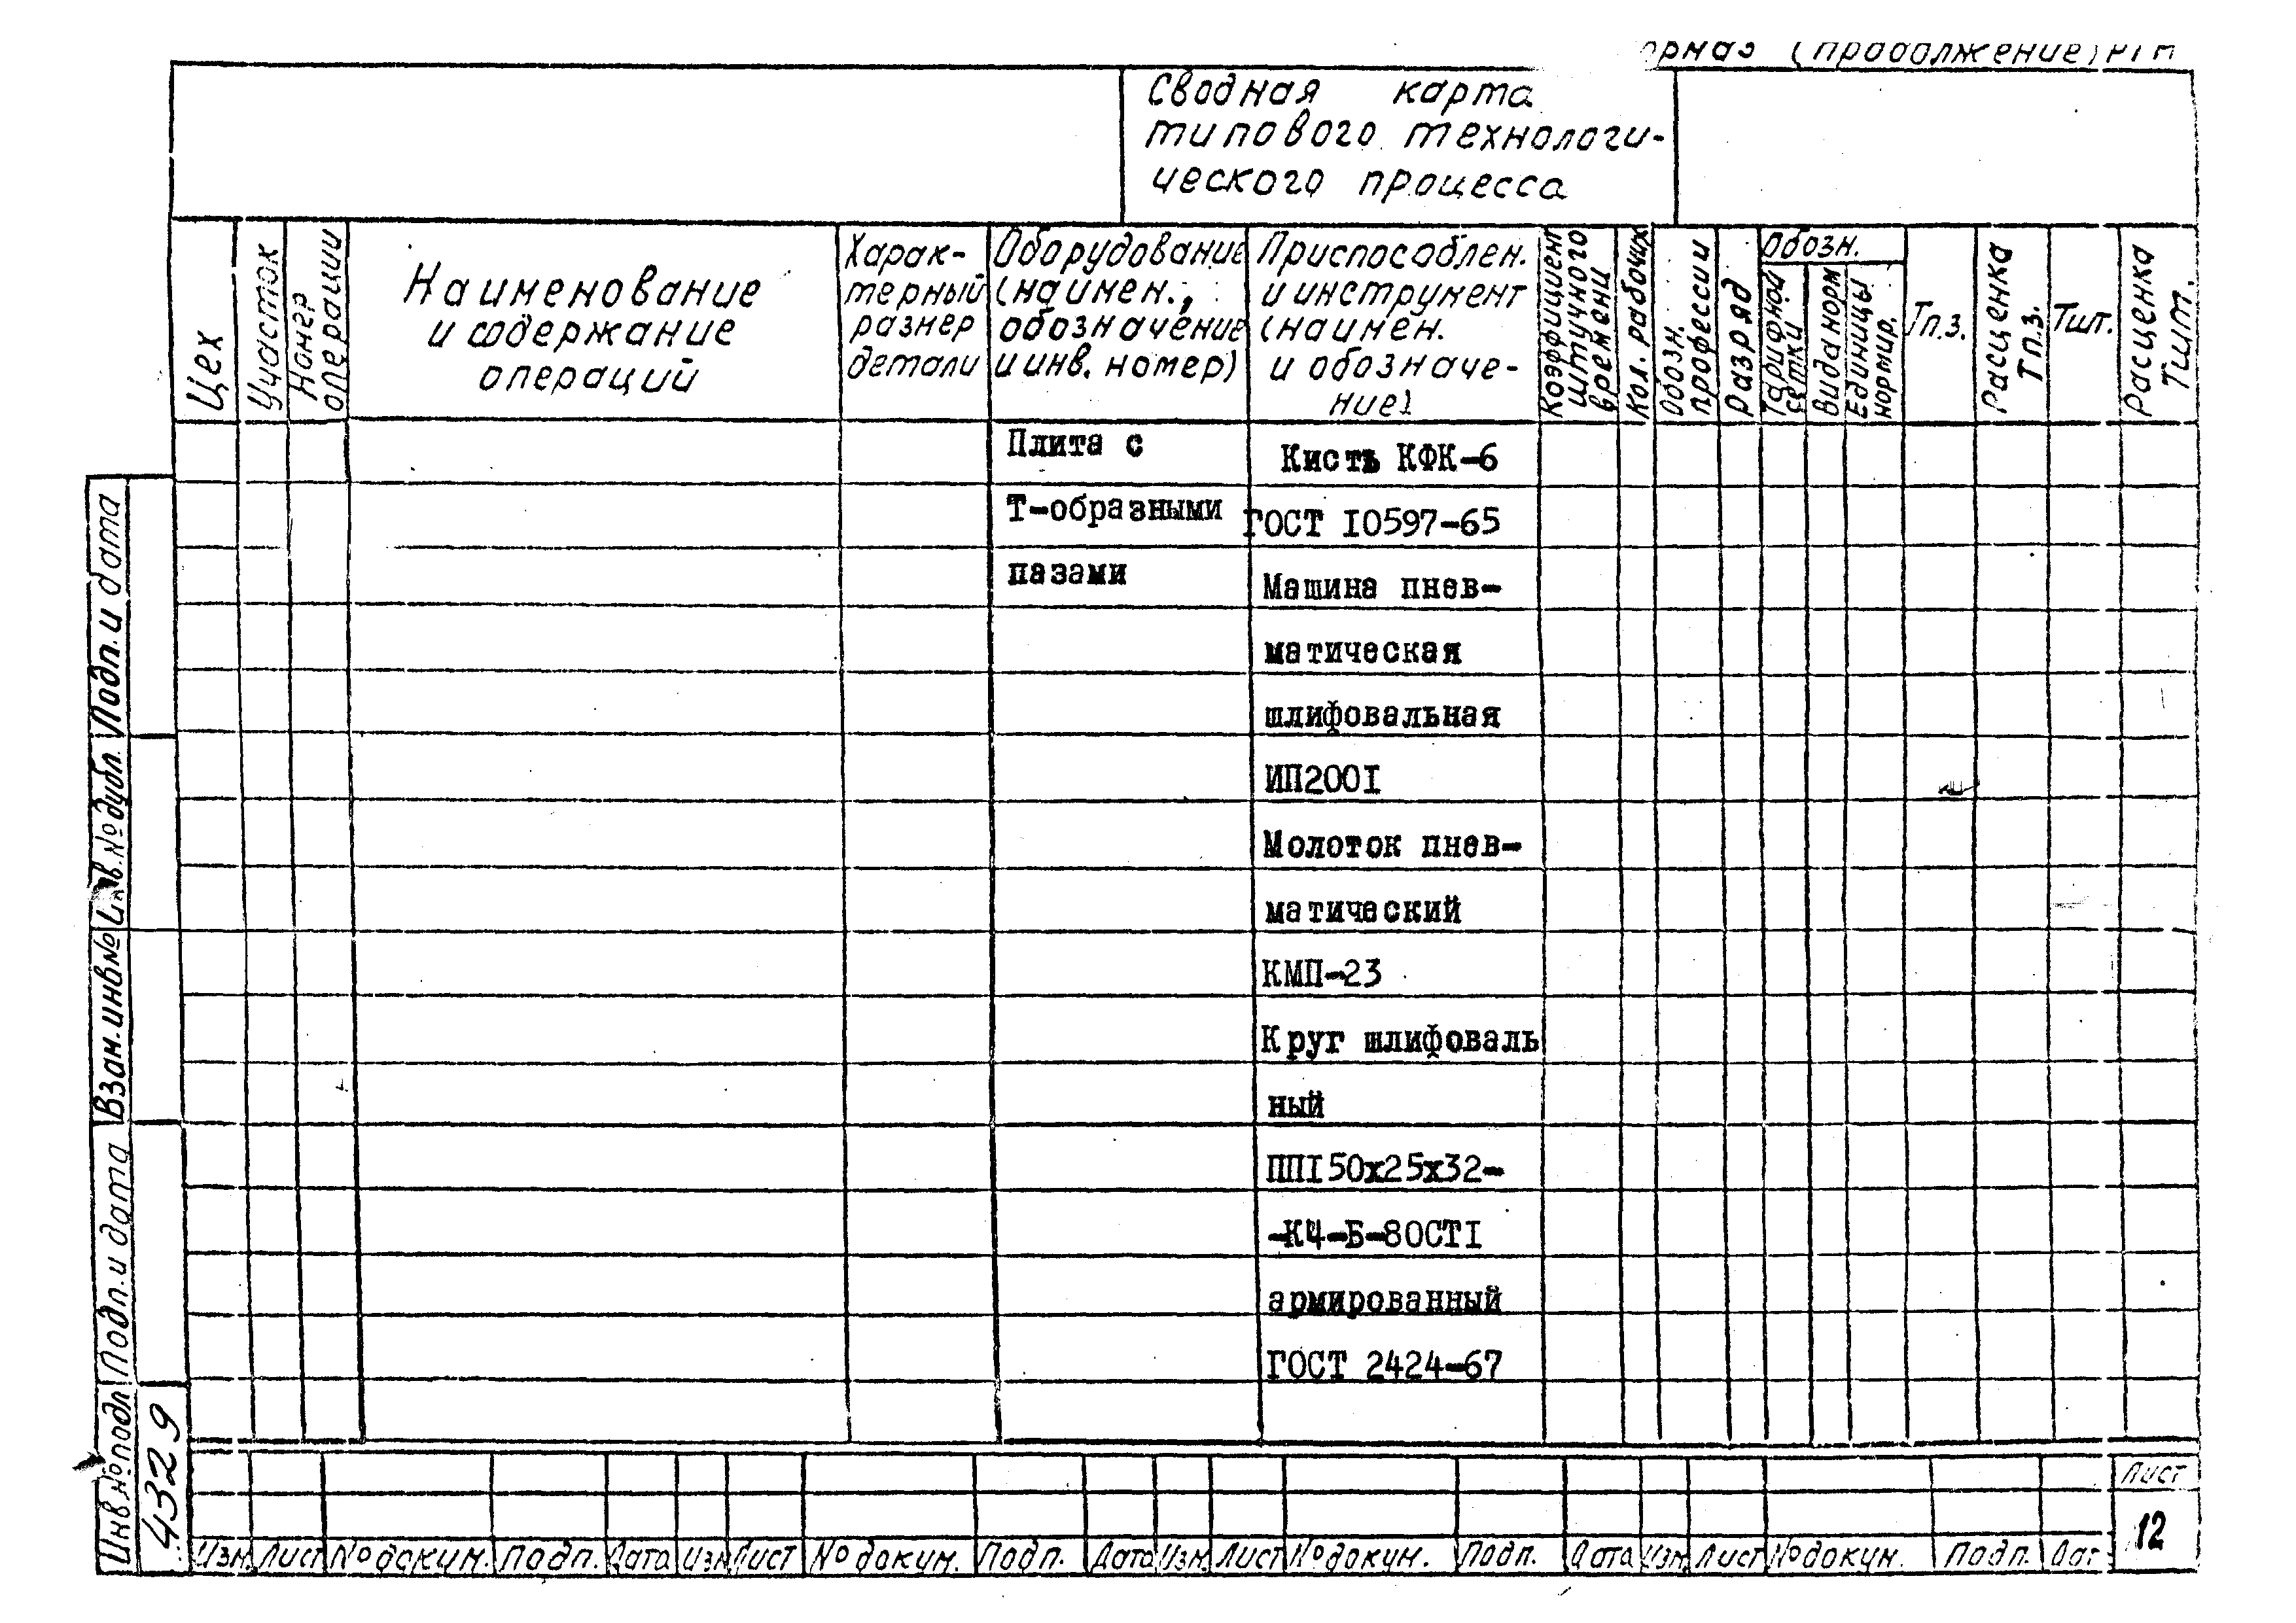 (продолжение)
Сводная карта
типового технологи-
ческого процесса
Цех
Участок
Номер
операции
Наименование
и содержание
операций
Харак-
терный
размер
детали
Оборудование
(наимен.,
обозначение
и инв. номер)
Приспособлен.
и инструмент
(наимен.
и обозначе-
ние)
Коэффициент
штучного
времени
Кол. рабочих
Обозн.
профессии
Разряд
Обозн.
Тарифной
сетки
Вида норм
Единицы
нормир.
Тп.з.
Расценка
Тп.з.
Тшт.
Расценка
Тшт.
Плита с
Т-образными
пазами
Кисть КФК-6
ГОСТ I0597-65
Машина пнев-
матическая
шлифовальная
ИП200I
Молоток пнев-
матический
КМП-23
Круг шлифоваль
ный
ППI50х25х32-
-К4-Б-80СТI
армированный
ГОСТ 2424-67
Подп. и дата
Инв. № дубл.
Взам. инв №
Подп. и дата
Инв. № подл
4329
Изм. Лист № докум. Подп. Дата Изм Лист № докум. Подп. Дата Изм. Лист № докум. Подп. Дата Изм. Лист № докум. Подп. Дат
Лист
12